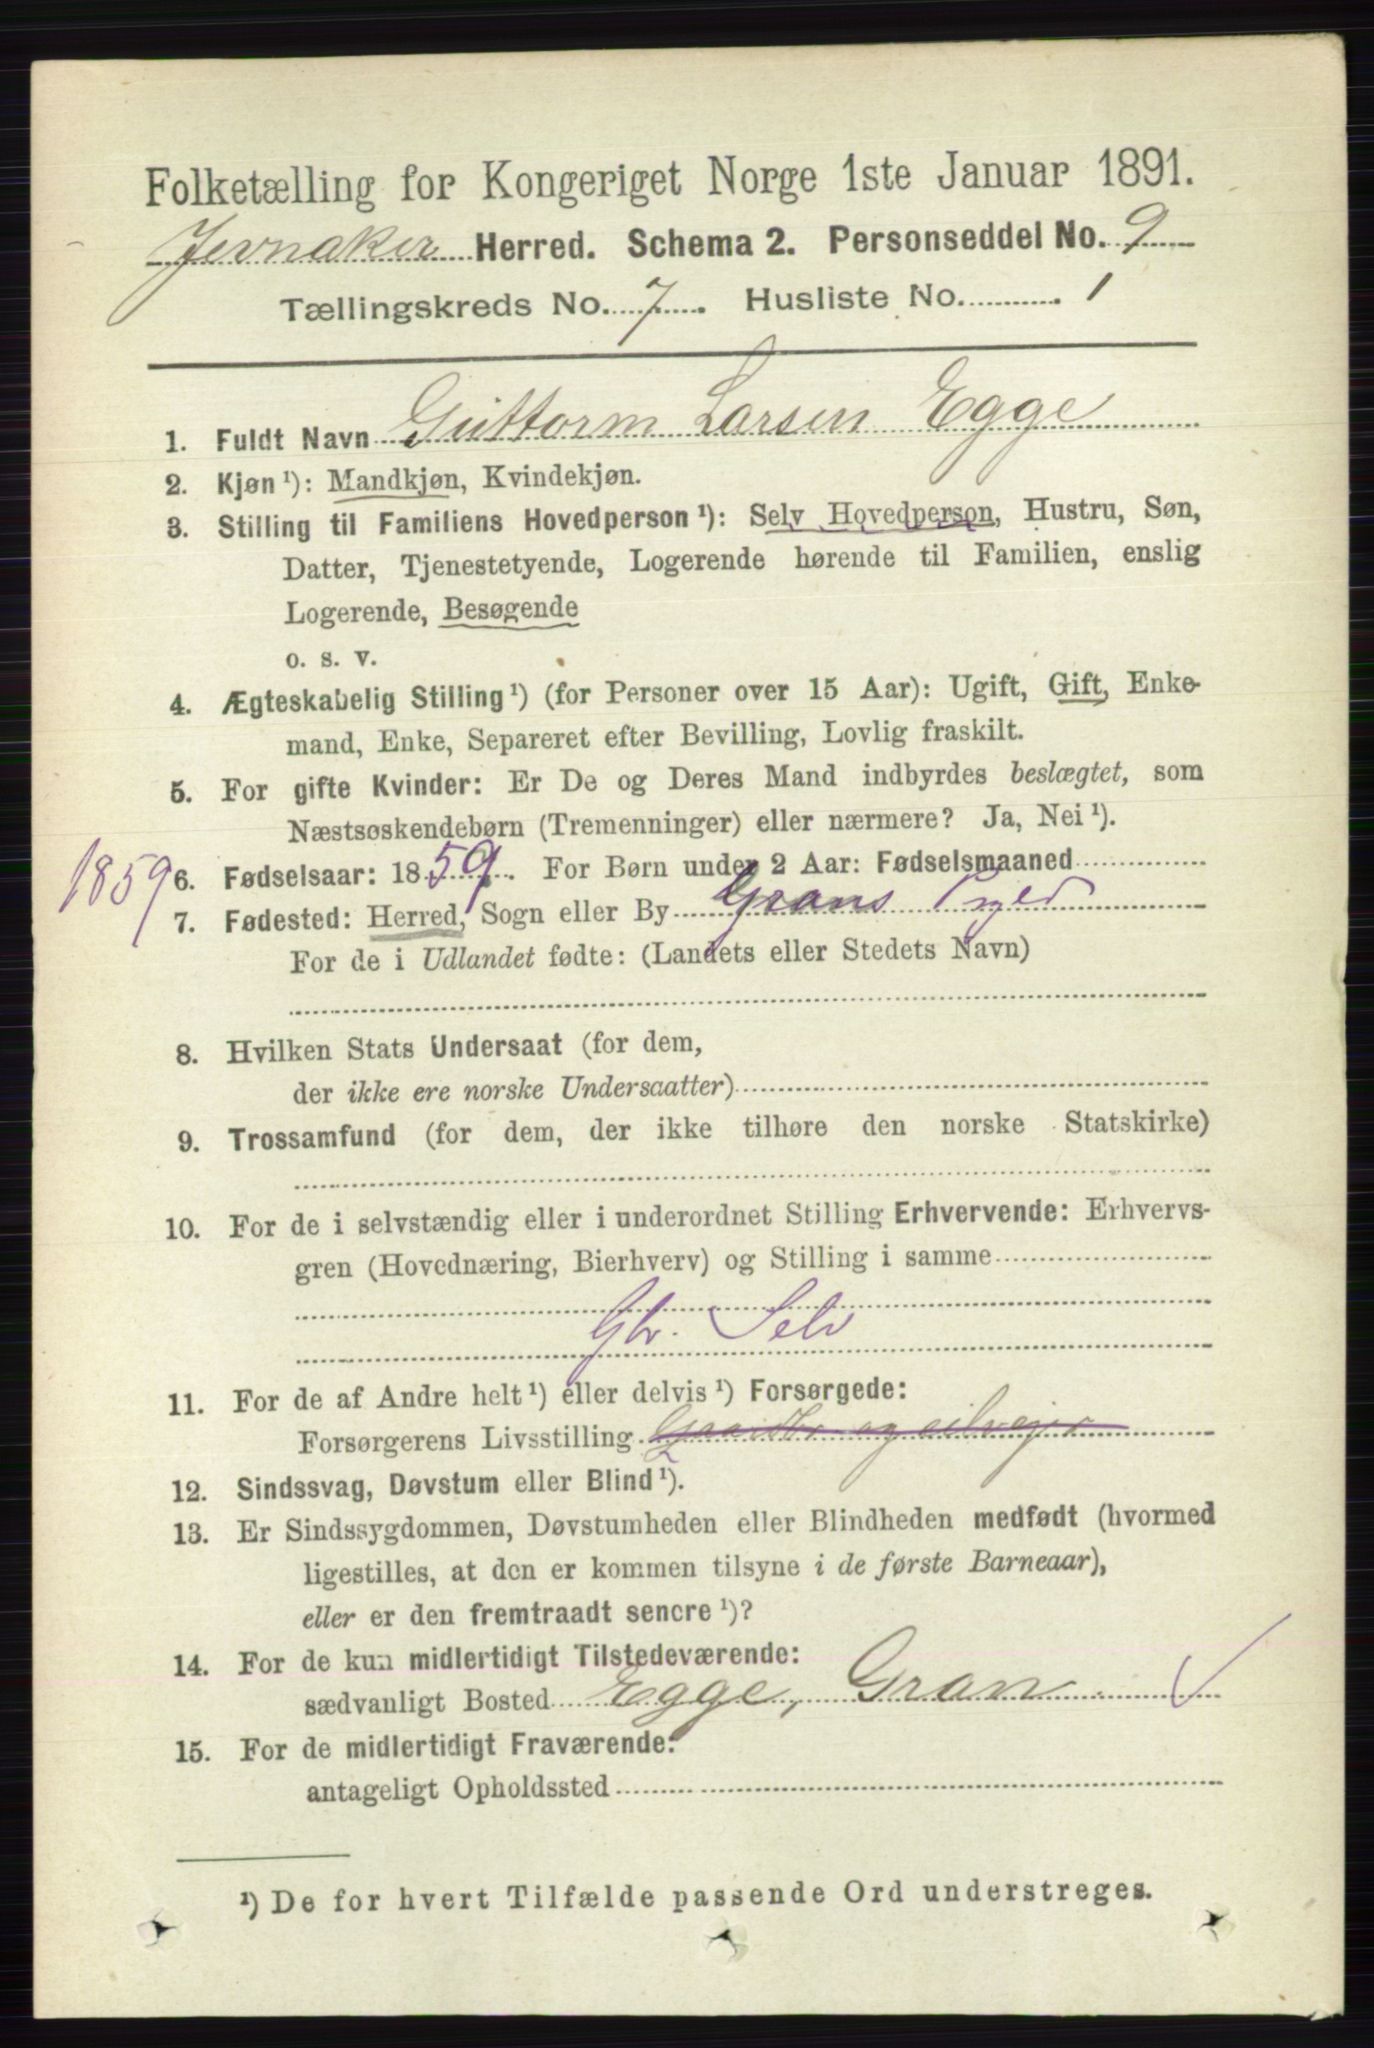 Folketælling for Kongeriget Norge 1ste Januar 1891.
Jevnaker Herred. Schema 2. Personseddel No. 9
Tællingskreds No. 7. Husliste No. 1
1. Fuldt Navn Guttorm Larsen Egge
2. Kjøn ¹): Mandkjøn, Kvindekjøn.
3. Stilling til Familiens Hovedperson ¹): Selv Hovedperson, Hustru, Søn,
Datter, Tjenestetyende, Logerende hørende til Familien, enslig
Logerende, Besøgende
o. s. v.
4. Ægteskabelig Stilling ¹) (for Personer over 15 Aar): Ugift, Gift, Enke-
mand, Enke, Separeret efter Bevilling, Lovlig fraskilt.
5. For gifte Kvinder: Er De og Deres Mand indbyrdes beslægtet, som
Næstsøskendebørn (Tremenninger) eller nærmere? Ja, Nei ¹).
1859 6. Fødselsaar: 1859. For Børn under 2 Aar: Fødselsmaaned
7. Fødested: Herred, Sogn eller By Grans Pgld
For de i Udlandet fødte: (Landets eller Stedets Navn)
8. Hvilken Stats Undersaat (for dem,
der ikke ere norske Undersaatter)
9. Trossamfund (for dem, der ikke tilhøre den norske Statskirke)
10. For de i selvstændig eller i underordnet Stilling Erhvervende: Erhvervs-
gren (Hovednæring, Bierhverv) og Stilling i samme
Gbr. Selv
11. For de af Andre helt ¹) eller delvis ¹) Forsørgede:
Forsørgerens Livsstilling Gaardbr og selvejer
12. Sindssvag, Døvstum eller Blind ¹).
13. Er Sindssygdommen, Døvstumheden eller Blindheden medfødt (hvormed
ligestilles, at den er kommen tilsyne i de første Barneaar),
eller er den fremtraadt senere ¹)?
14. For de kun midlertidigt Tilstedeværende:
sædvanligt Bosted Egge, Gran
15. For de midlertidigt Fraværende:
antageligt Opholdssted
¹) De for hvert Tilfælde passende Ord understreges.